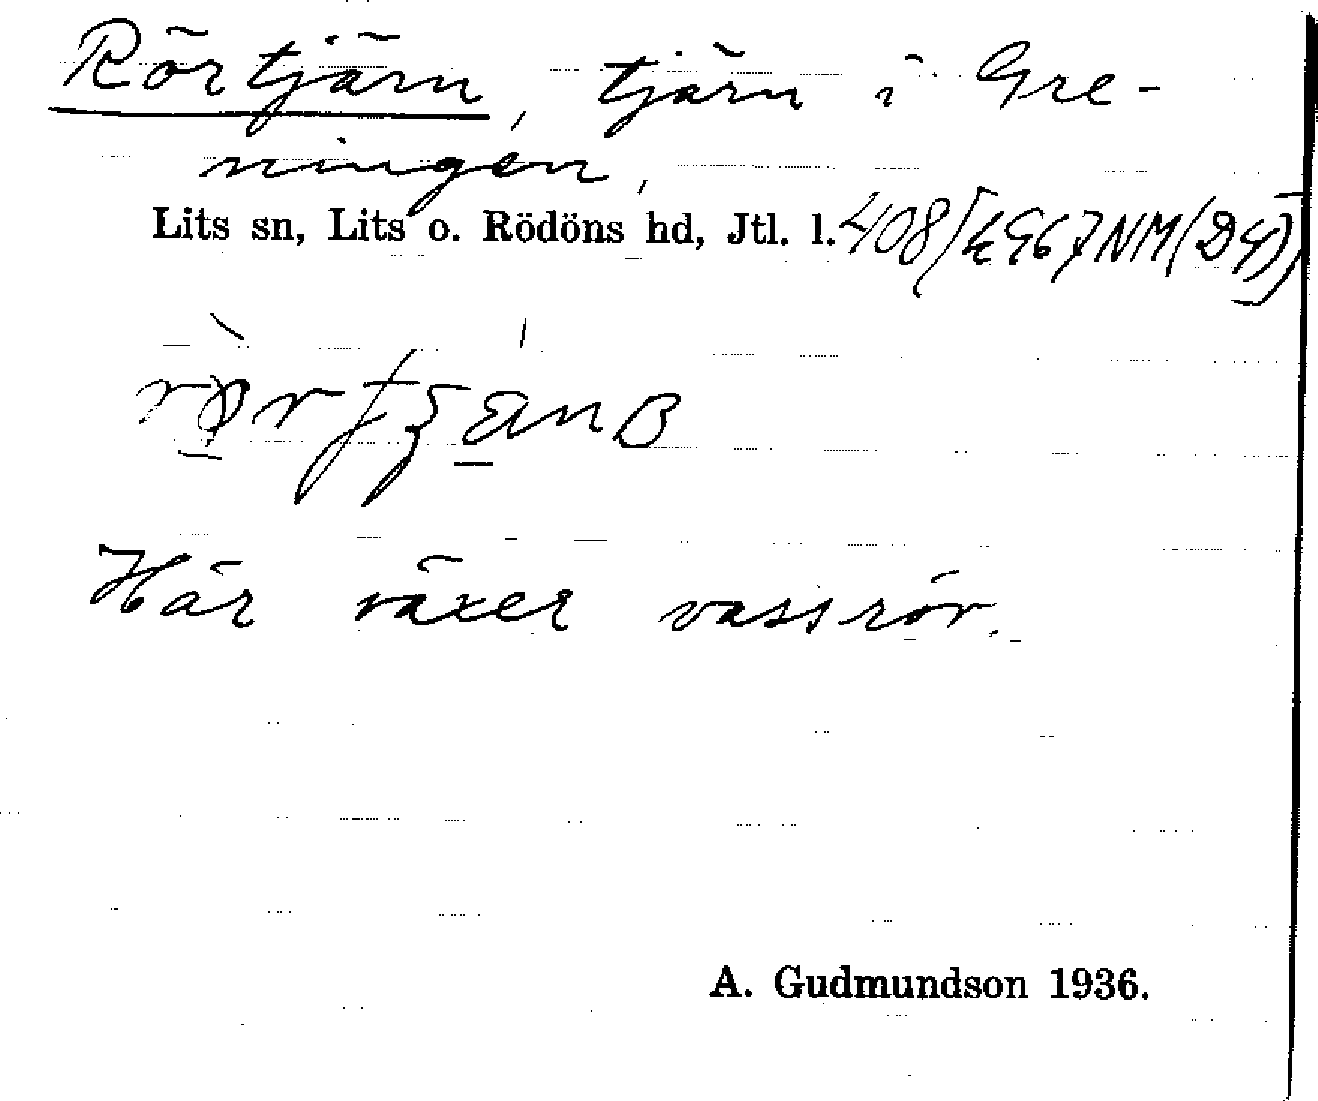 Rörtjärn, tjärn i Gre-
ningen,
Lits sn, Lits o. Rödöns hd, Jtl. l.
Här växer vassrör.
A. Gudmundson 1936.